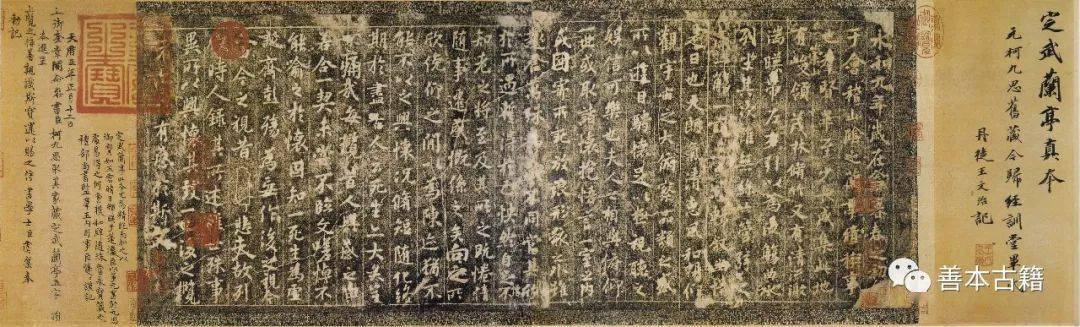 定武蘭亭真本
元柯九思舊藏今歸經訓堂畢
丹徒王文治記
永和九年歲在癸丑暮春之初
于會稽山陰之蘭亭脩禊事
羣賢畢至少長咸集此地
有峻領茂林脩竹
湍暎帶左右引以為流觴曲
列坐其次雖無絲竹管弦之
盛一觴一詠亦足以暢敘幽情
是日也天朗氣清惠風和暢仰
觀宇宙之大俯察品類之盛
所以遊目騁懷足以極視聽之
娛信可樂也夫人之相與俯仰
一世或取諸懷抱悟言一室之內
或因寄所託放浪形骸之外雖
趣舍萬殊靜躁不同當其欣
於所遇蹔得於己怏然自足不
知老之將至及其所之既惓情
隨事遷感慨係之矣向之所
欣俛仰之閒以為陳迹猶不
能不以之興懷況脩短隨化終
期於盡古人云死生亦大矣豈
不痛哉每攬昔人興感之由
若合一契未嘗不臨文嗟悼不
能喻之於懷固知一死生為虛
誕齊彭殤為妄作後之視今
亦由今之視昔悲夫故列
敘時人錄其所述雖世殊事
異所以興懷其致一也後之攬
者亦將有感於斯文
天曆三年正月十二日
上御奎章閣命參書臣柯九思取其家藏定武蘭亭五字損
本進呈
上覽之稱善親識斯寶還以賜之侍書學士臣虞集奉
勅記
善本古籍